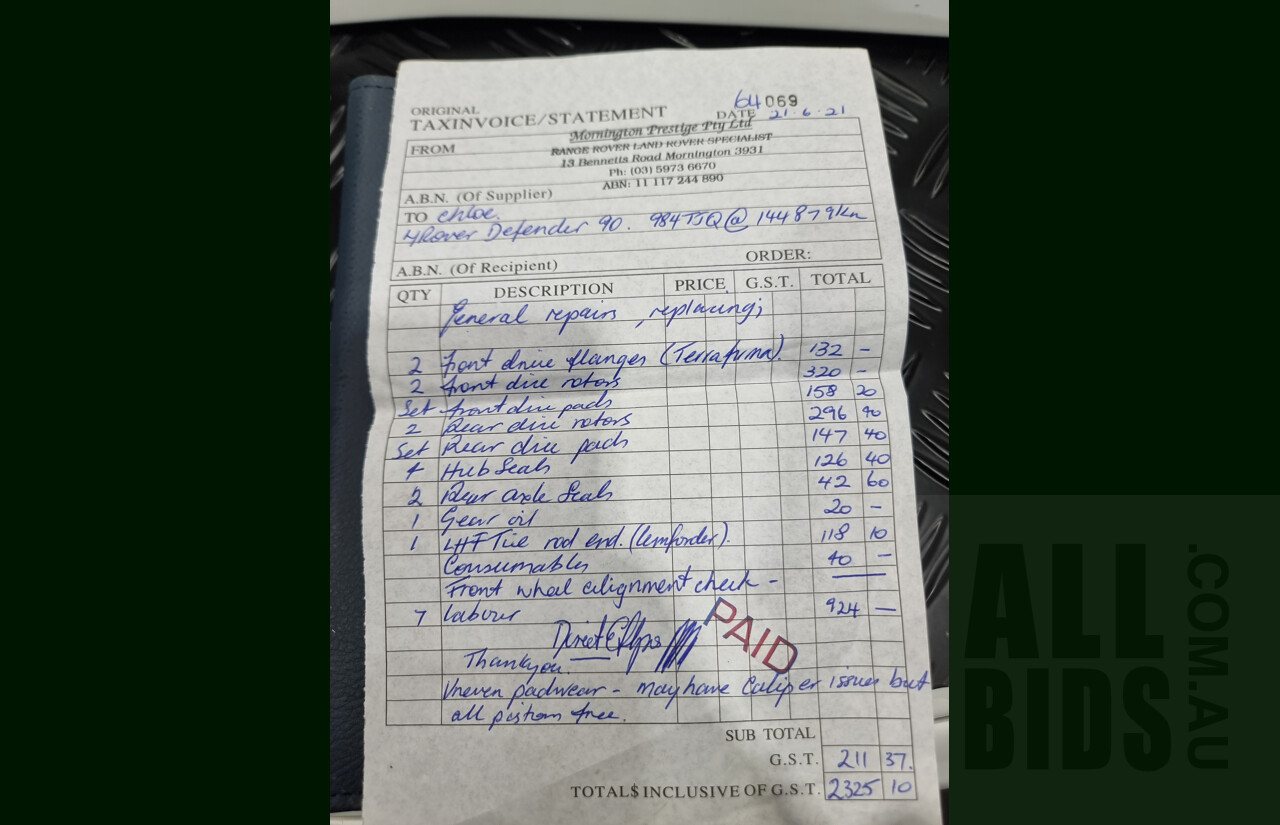 64069
ORIGINAL
TAXINVOICE/STATEMENT DATE 21.6.21
Mornington Prestige Pty Ltd
FROM RANGE ROVER LAND ROVER SPECIALIST
13 Bennetts Road Mornington 3931
Ph: (03) 5973 6670
ABN: 11 117 244 890
A.B.N. (Of Supplier)
TO Chloe.
Rover Defender 90. 984 @ 144879km
ORDER:
A.B.N. (Of Recipient)
QTY DESCRIPTION PRICE G.S.T. TOTAL
General repairs, replacing;
2 front drive flanges (Terrafirma). 132 -
2 front disc rotors 320 -
Set front disc pads 158 20
2 Rear disc rotors 296 40
Set Rear disc pads 147 40
4 Hub Seals 126 40
2 Rear axle Seals 42 60
1 Gear oil 20 -
1 LHF Tie rod end. (lemforder). 118 10
Consumables 40 -
Front wheel alignment check - —
7 labour 924 —
Direct
PAID
Thankyou.
Uneven padwear - may have Caliper issues but
all pistons free.
SUB TOTAL
G.S.T. 211 37.
TOTAL$ INCLUSIVE OF G.S.T. 2325 10
ALL
BIDS
.COM.AU